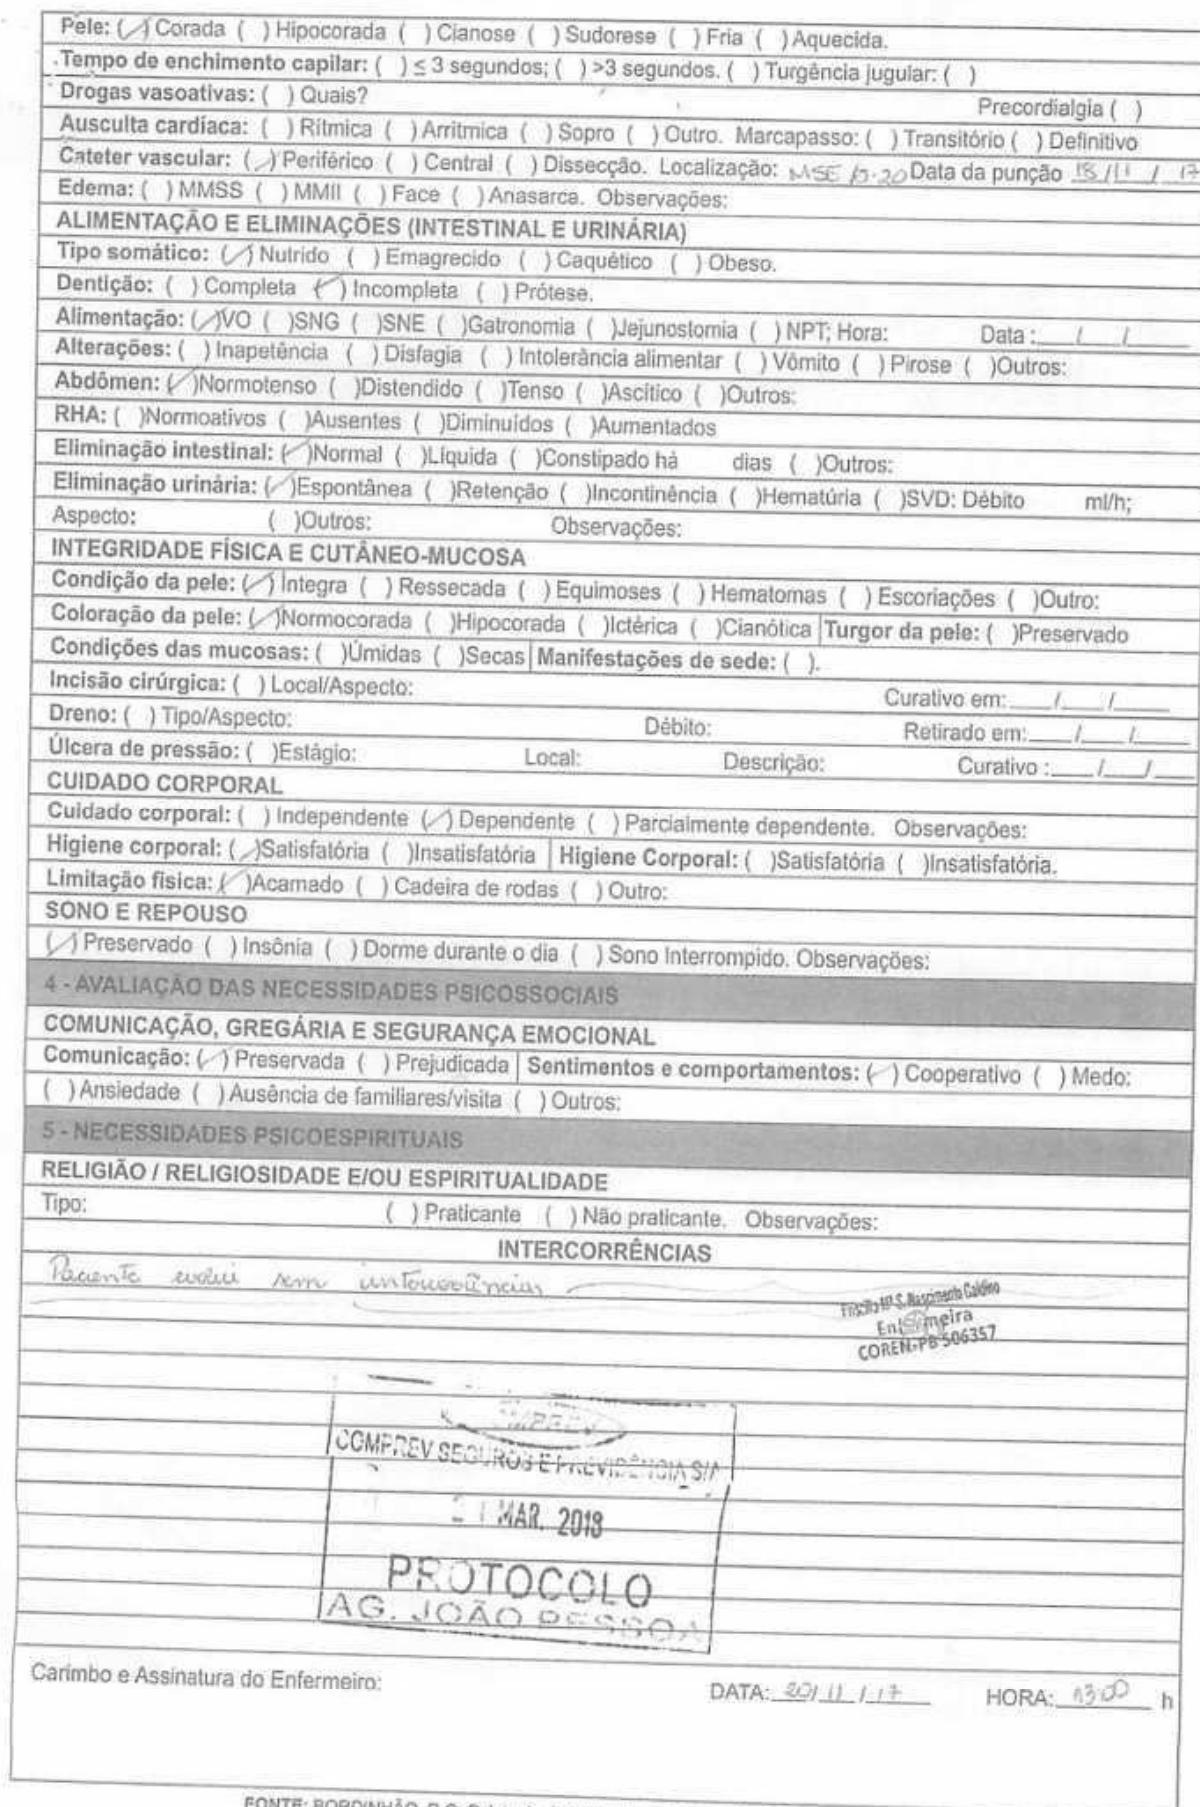 Pele: (✓) Corada ( ) Hipocorada ( ) Cianose ( ) Sudorese ( ) Fria ( ) Aquecida.
Tempo de enchimento capilar: ( ) ≤ 3 segundos; ( ) >3 segundos. ( ) Turgência jugular: ( )
Drogas vasoativas: ( ) Quais? Precordialgia ( )
Ausculta cardíaca: ( ) Rítmica ( ) Arritmica ( ) Sopro ( ) Outro. Marcapasso: ( ) Transitório ( ) Definitivo
Cateter vascular: (✓) Periférico ( ) Central ( ) Dissecção. Localização: MSE Data da punção 18/11/17
Edema: ( ) MMSS ( ) MMII ( ) Face ( ) Anasarca. Observações:
ALIMENTAÇÃO E ELIMINAÇÕES (INTESTINAL E URINÁRIA)
Tipo somático: (✓) Nutrido ( ) Emagrecido ( ) Caquético ( ) Obeso.
Dentição: ( ) Completa (✓) Incompleta ( ) Prótese.
Alimentação: (✓)VO ( )SNG ( )SNE ( )Gatronomia ( )Jejunostomia ( ) NPT; Hora: Data :___/___/___
Alterações: ( ) Inapetência ( ) Disfagia ( ) Intolerância alimentar ( ) Vômito ( ) Pirose ( )Outros:
Abdômen: (✓)Normotenso ( )Distendido ( )Tenso ( )Ascítico ( )Outros:
RHA: ( )Normoativos ( )Ausentes ( )Diminuídos ( )Aumentados
Eliminação intestinal: (✓)Normal ( )Líquida ( )Constipado há dias ( )Outros:
Eliminação urinária: (✓)Espontânea ( )Retenção ( )Incontinência ( )Hematúria ( )SVD: Débito ml/h;
Aspecto: ( )Outros: Observações:
INTEGRIDADE FÍSICA E CUTÂNEO-MUCOSA
Condição da pele: (✓) Íntegra ( ) Ressecada ( ) Equimoses ( ) Hematomas ( ) Escoriações ( )Outro:
Coloração da pele: (✓)Normocorada ( )Hipocorada ( )Ictérica ( )Cianótica Turgor da pele: ( )Preservado
Condições das mucosas: ( )Úmidas ( )Secas Manifestações de sede: ( ).
Incisão cirúrgica: ( ) Local/Aspecto: Curativo em:___/___/___
Dreno: ( ) Tipo/Aspecto: Débito: Retirado em:___/___/___
Úlcera de pressão: ( )Estágio: Local: Descrição: Curativo :___/___/___
CUIDADO CORPORAL
Cuidado corporal: ( ) Independente (✓) Dependente ( ) Parcialmente dependente. Observações:
Higiene corporal: (✓)Satisfatória ( )Insatisfatória Higiene Corporal: ( )Satisfatória ( )Insatisfatória.
Limitação física: (✓)Acamado ( ) Cadeira de rodas ( ) Outro:
SONO E REPOUSO
(✓) Preservado ( ) Insônia ( ) Dorme durante o dia ( ) Sono Interrompido. Observações:
4 - AVALIAÇÃO DAS NECESSIDADES PSICOSSOCIAIS
COMUNICAÇÃO, GREGÁRIA E SEGURANÇA EMOCIONAL
Comunicação: (✓) Preservada ( ) Prejudicada Sentimentos e comportamentos: (✓) Cooperativo ( ) Medo:
( ) Ansiedade ( ) Ausência de familiares/visita ( ) Outros:
5 - NECESSIDADES PSICOESPIRITUAIS
RELIGIÃO / RELIGIOSIDADE E/OU ESPIRITUALIDADE
Tipo: ( ) Praticante ( ) Não praticante. Observações:
INTERCORRÊNCIAS
Paciente evolui sem intercorrências
Nascimento Galdino
Enfermeira
COREN-PB 506357
COMPREV SEGUROS E PREVIDÊNCIA S/A
MAR. 2018
PROTOCOLO
AG. JOÃO PESSOA
Carimbo e Assinatura do Enfermeiro: DATA: 20/11/17 HORA: 13:00 h